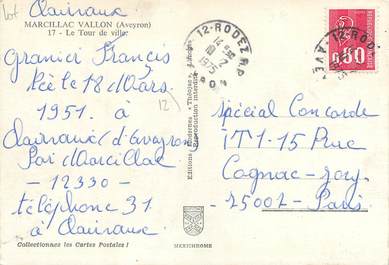 Lot Clairvaux
MARCILLAC VALLON (Aveyron)
17 - Le Tour de ville
Granier Francis
Née le 18 Mars
1951. à
Clairvaux d'Aveyron
Par Marcillac
- 12330 -
téléphone 31
à Clairvaux
Collectionnez les Cartes Postales !
12
Editions Modernes " Théojac "
Reproduction interdite
MEXICHROME
12-RODEZ R.P.
1975
0,80
12-ROD
AVE
spécial Concorde
IT1-15 Rue
Cognac-Jay
75007 - Paris